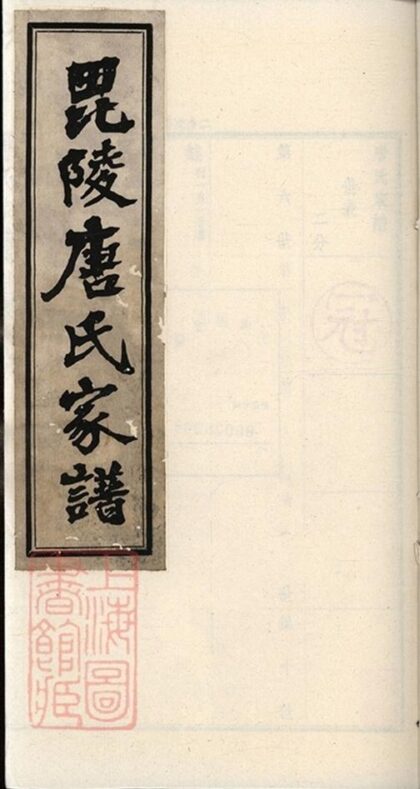 毘陵唐氏家譜
上海圖
書館藏